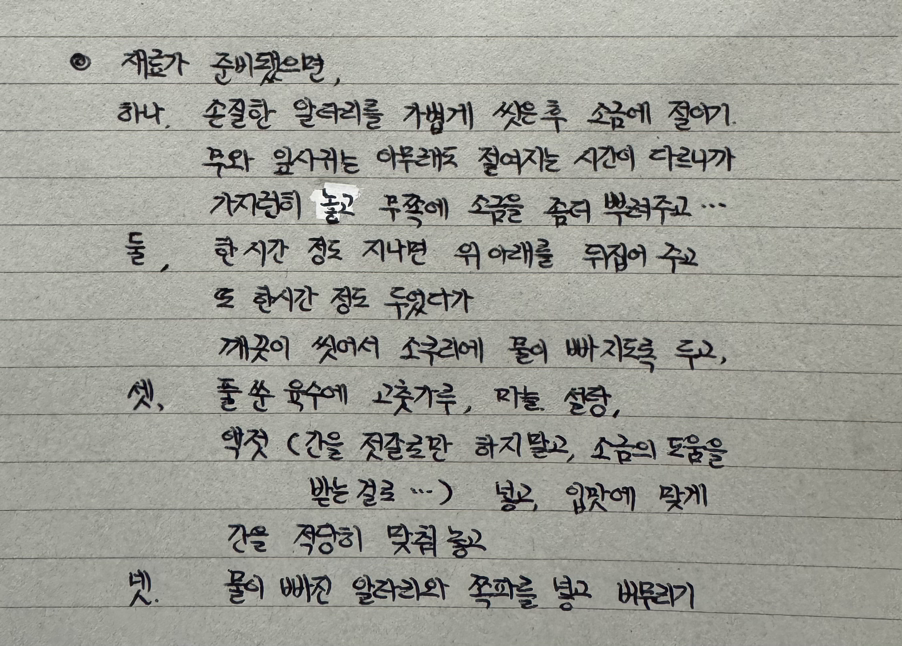 ◉ 재료가 준비됐으면,
하나. 손질한 알타리를 가볍게 씻은 후 소금에 절이기.
무와 잎사귀는 아무래도 절여지는 시간이 다르니까
가지런히 놓고 무쪽에 소금을 좀더 뿌려주고 …
둘, 한시간 정도 지나면 위 아래를 뒤집어 주고
또 한시간 정도 두었다가
깨끗이 씻어서 소쿠리에 물이 빠지도록 두고,
셋, 풀 쑨 육수에 고춧가루, 마늘. 설탕,
액젓 (간을 젓갈로만 하지말고, 소금의 도움을
받는 걸로 …) 넣고, 입맛에 맞게
간을 적당히 맞춰 놓고
넷. 물이 빠진 알타리와 쪽파를 넣고 버무리기